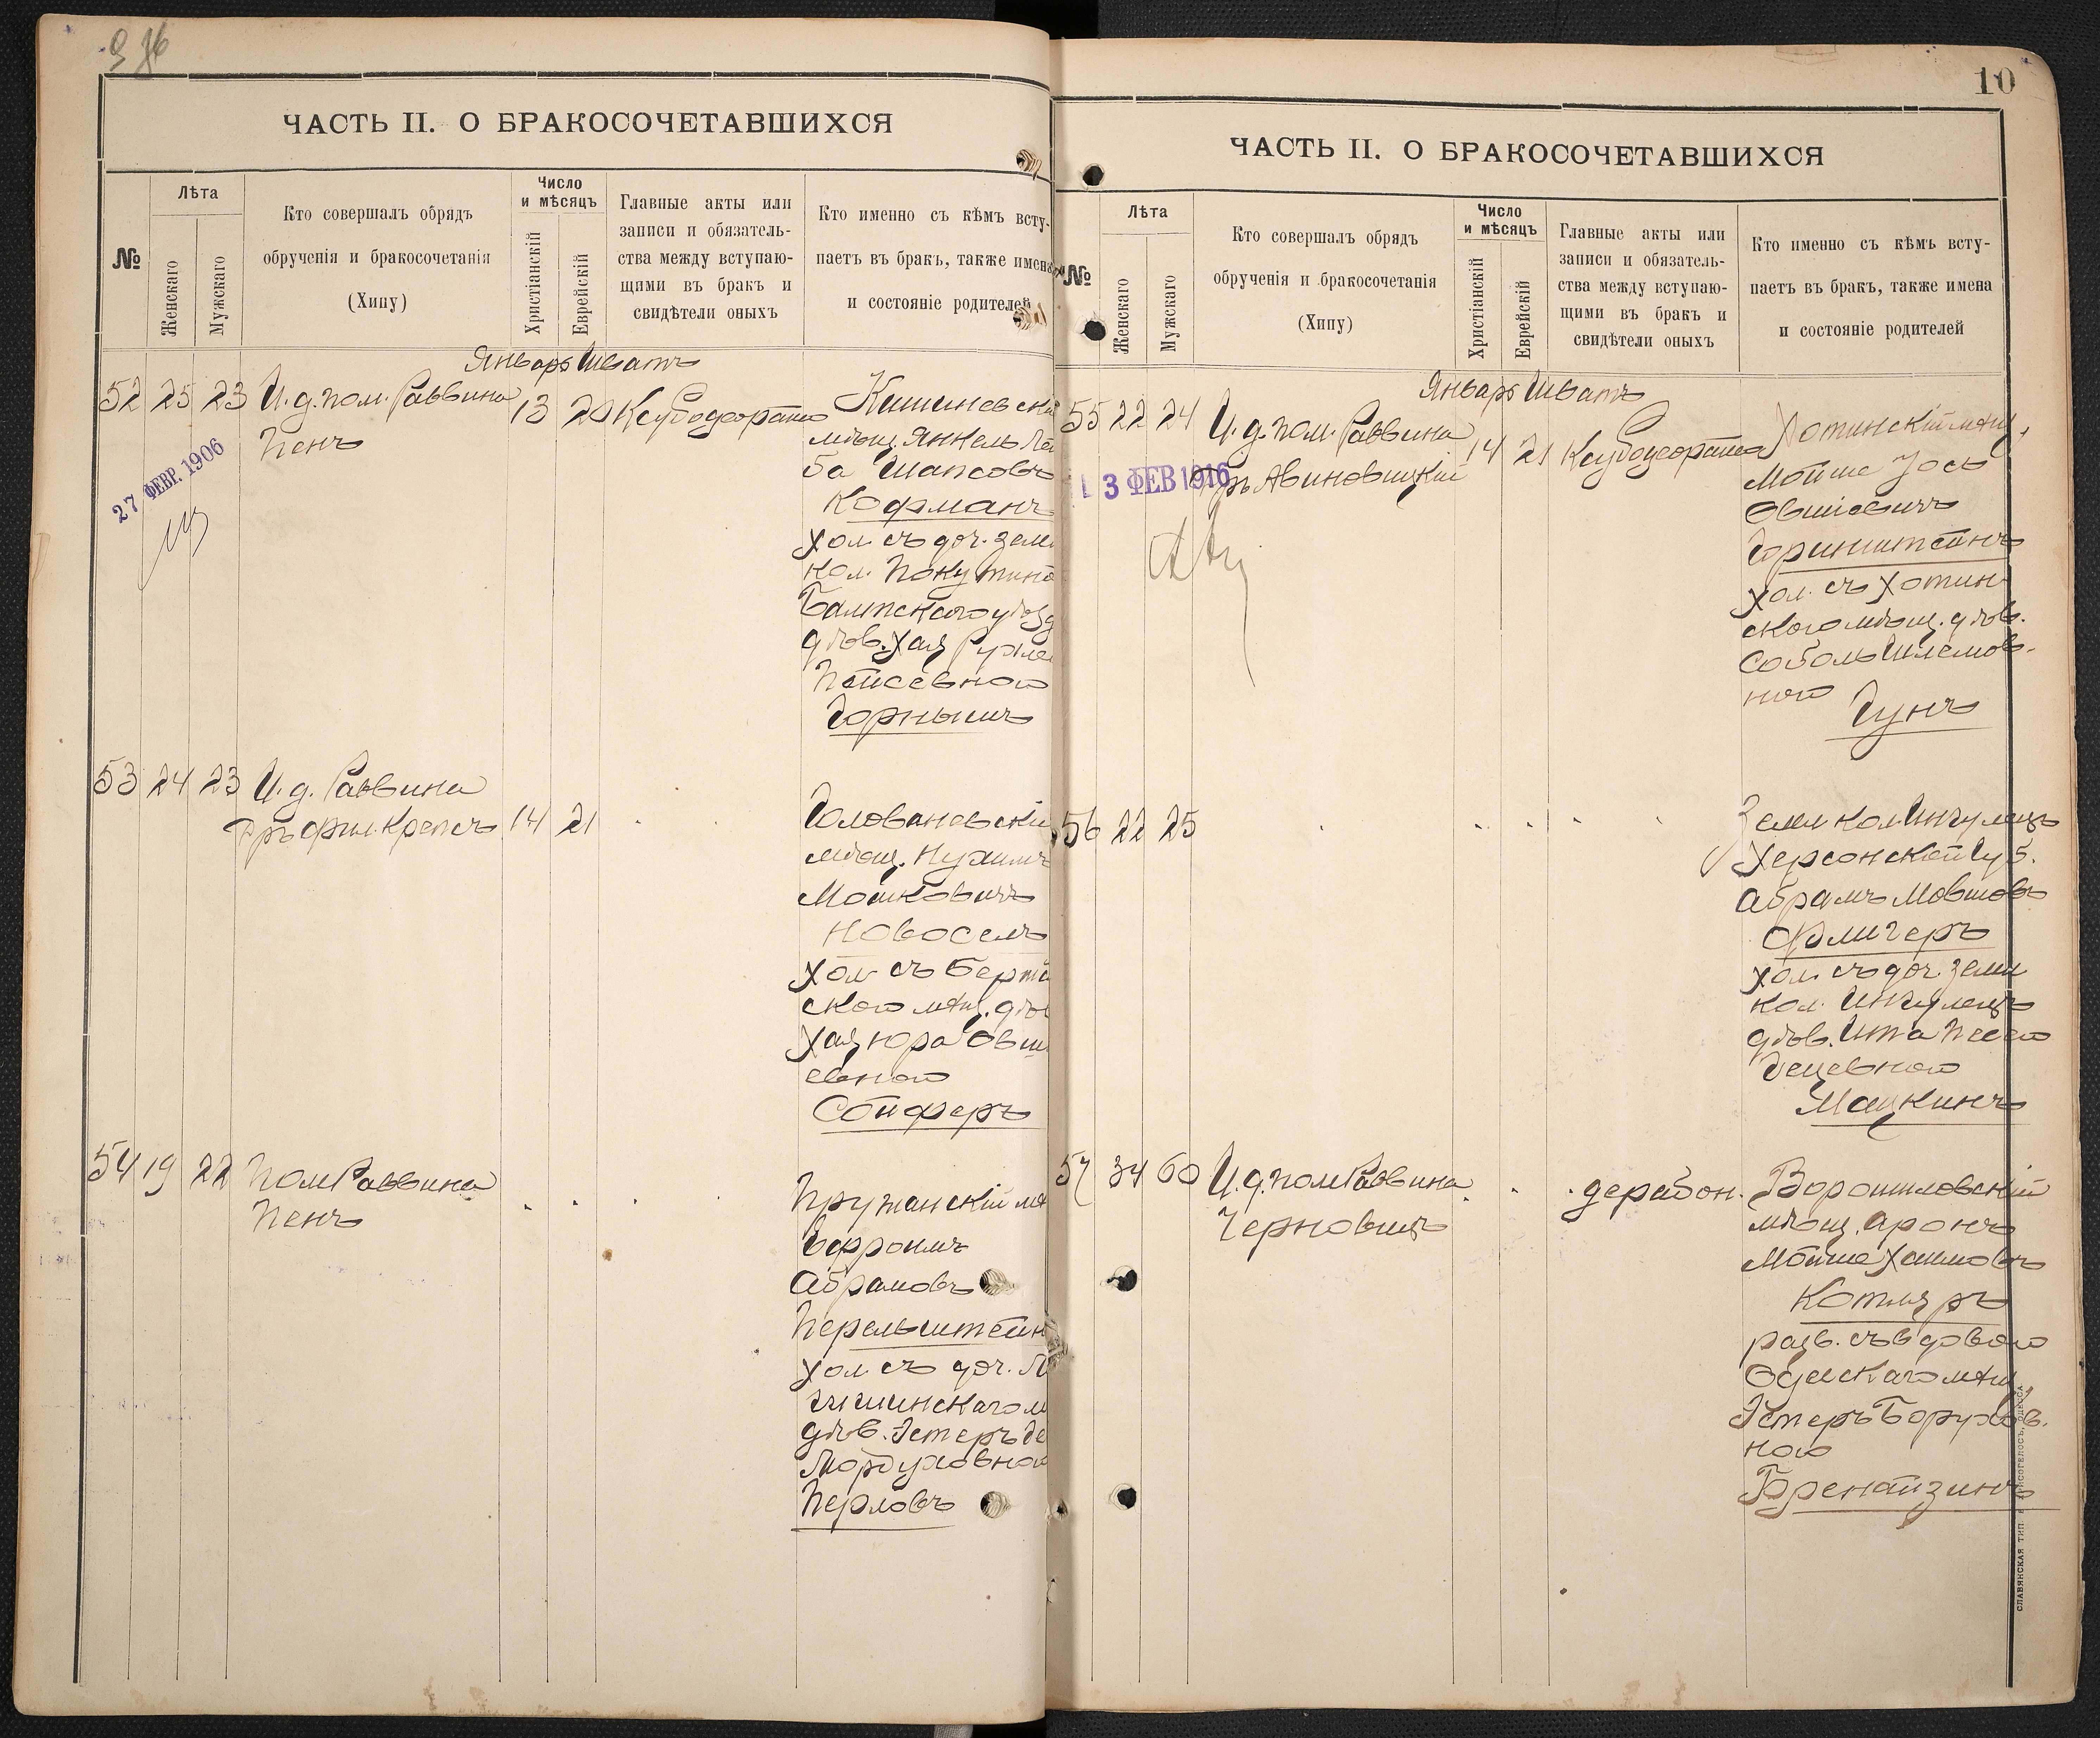 ЧАСТЬ II. О БРАКОСОЧЕТАВШИХСЯ
№
Лѣта
Женскаго
Мужскаго
Кто совершалъ обрядъ
обрученія и бракосочетанія
(Хипу)
Число
и мѣсяцъ
Христіанскій
Еврейскій
Главные акты или
записи и обязатель-
ства между вступаю-
щими въ бракъ и
свидѣтели оныхъ
Кто именно съ кѣмъ всту-
паетъ въ бракъ, также имена
и состояніе родителей
Январь Шватъ
52 25 23 И. д. пом. Раввина
Пенъ
13 20
27 ФЕВР. 1906
Кишиневскі
мѣщ. Янкель Ле
ба Шапсовъ
Кофманъ
хол. съ доч. земл
кол. Покутино
Балтскаго уѣзд
дѣв. Хая Рухле
Пейсевною
Горнымъ
53 24 23 И. д. Раввина
Дръ фил. Крепсъ 14 21
Голованевскі
мѣщ. Нухимъ
Мошковичъ
Новоселъ
хол. съ Берш
ского мѣщ. дѣв
Хая Юра Овш
евною
Сойферъ
54 19 22 Пом Раввина
Пенъ
Пружанскій мѣ
Ефроимъ
Абрамовъ
Перельштейн
хол. съ доч.
дѣв. Эстеръ
Мордуховною
Перловъ
10
ЧАСТЬ II. О БРАКОСОЧЕТАВШИХСЯ
№
Лѣта
Женскаго
Мужскаго
Кто совершалъ обрядъ
обрученія и бракосочетанія
(Хипу)
Число
и мѣсяцъ
Христіанскій
Еврейскій
Главные акты или
записи и обязатель-
ства между вступаю-
щими въ бракъ и
свидѣтели оныхъ
Кто именно съ кѣмъ всту-
паетъ въ бракъ, также имена
и состояніе родителей
Январь Шватъ
55 22 24 И. д. пом. Раввина
Дръ Авиновицкій 14 21
3 ФЕВ 1916
Хотинскій мѣщ.
Мойше Іось
Овшіевичъ
Гринштейнъ
хол. съ Хотин
ского мѣщ. дѣв.
Соболь Шлемов-
ною
Гунъ
56 22 25
Земл кол. Ингулецъ
Херсонской Губ.
Абрамъ Мовшовъ
Фличеръ
хол. съ доч. земл
кол. Ингулецъ
дѣв. Ита Песею
Мацкинъ
57 34 60 И. д. пом Раввина
Черновицъ
дерабон.
Ворошиловскій
мѣщ. Аронъ
Мойше Хаимовъ
Котляръ
разв. съ вдовою
Одесскаго мѣщ.
Эстеръ Борухов.
ною
Бренайзинъ